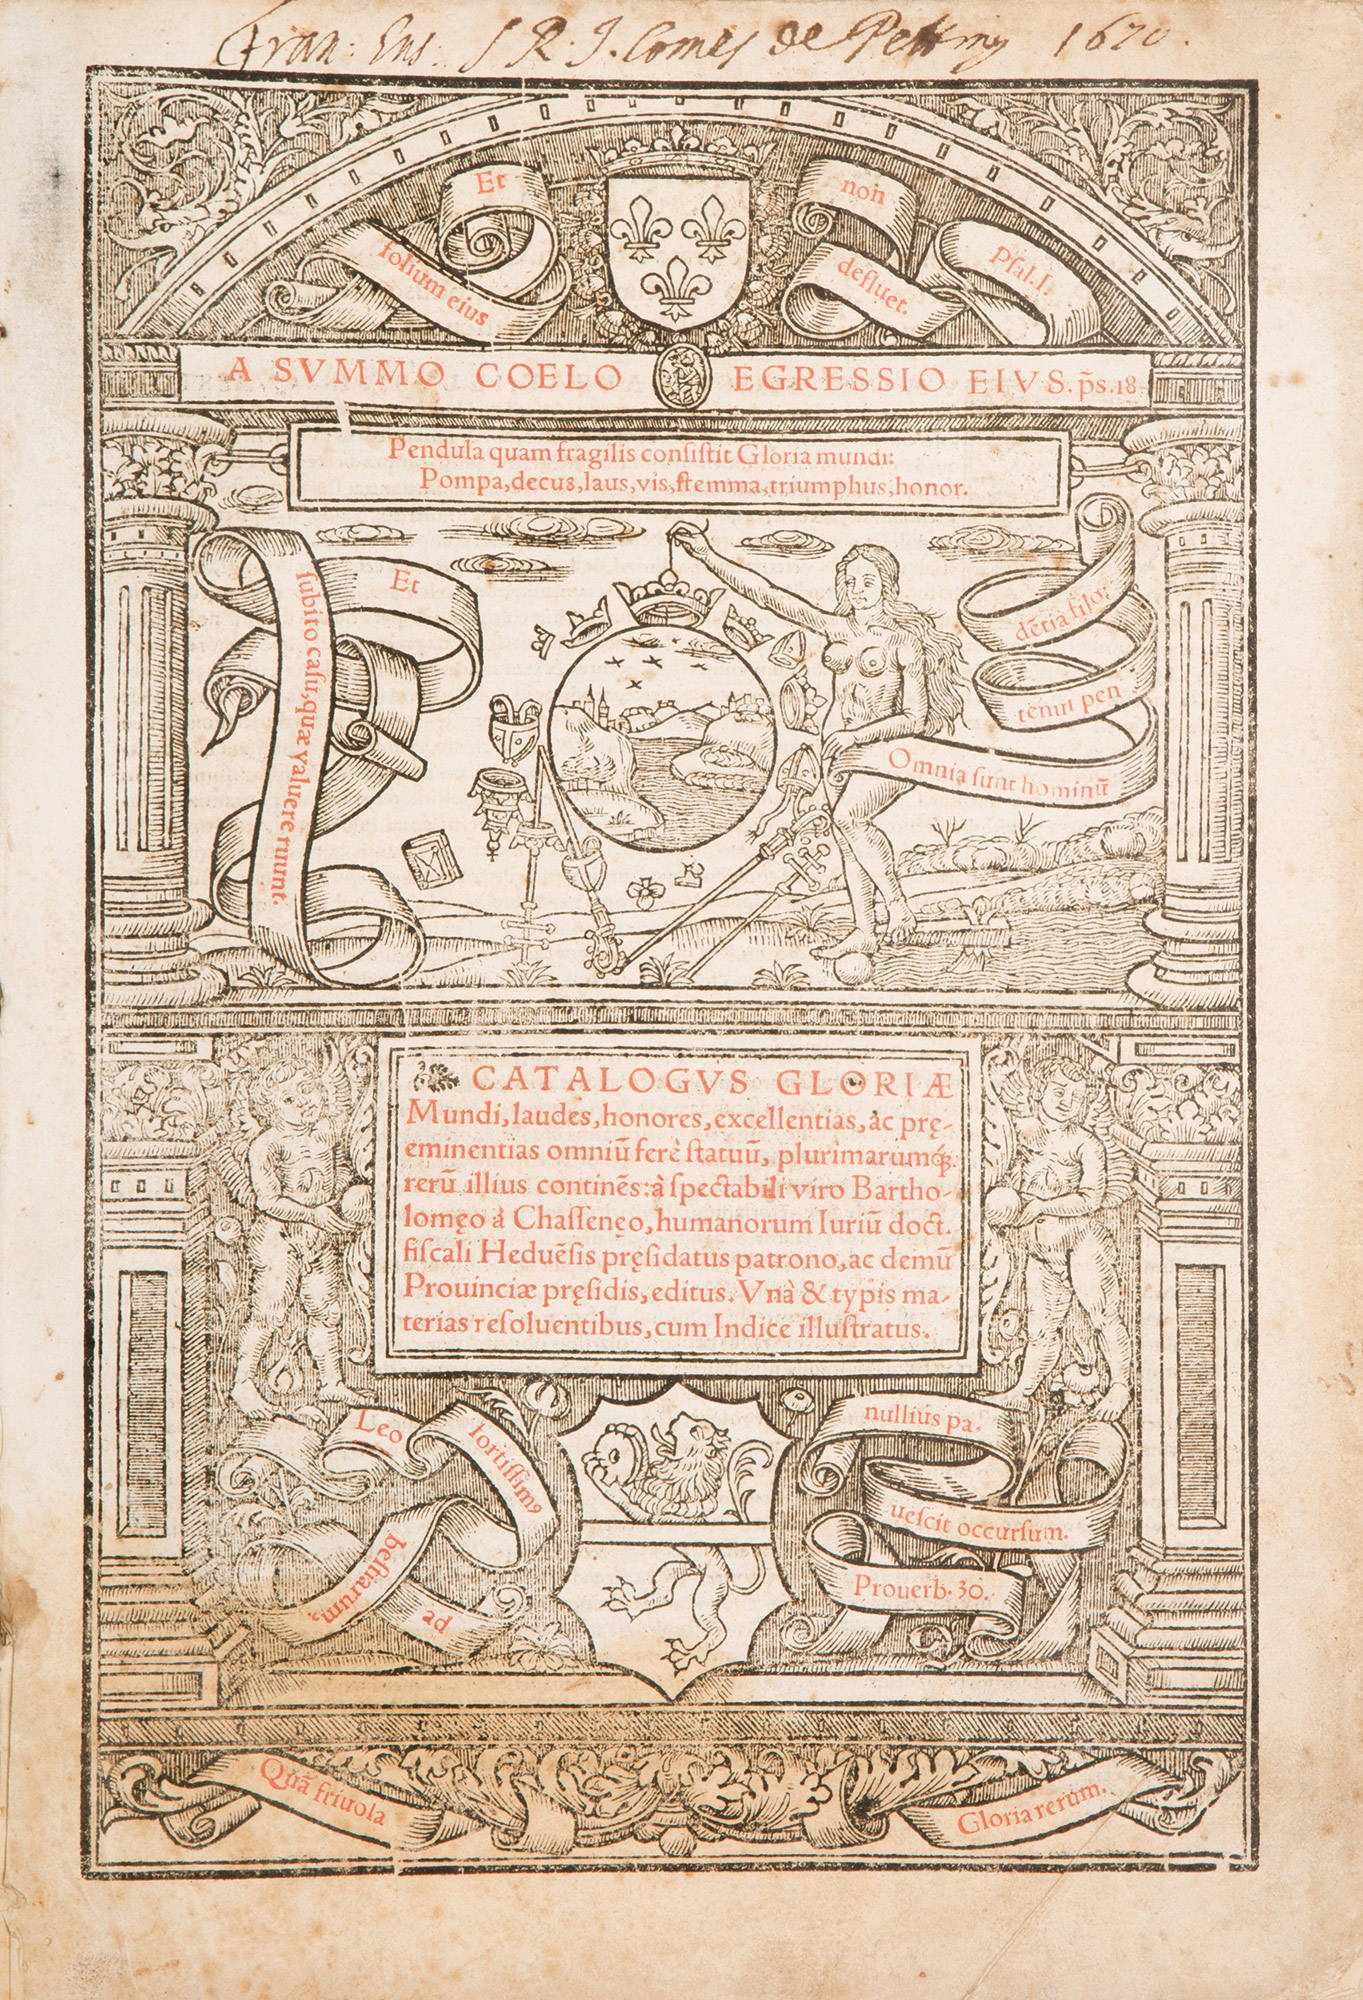 Fran: Eus: S R. I. Comes de 1670.
Et
folium eius
non
defluet.
Psal.I.
A SVMMO COELO EGRESSIO EIVS. p̄s.18
Pendula quam fragilis consistit Gloria mundi:
Pompa, decus, laus, vis, stemma, triumphus, honor.
Et
subito casu, quæ valuere ruunt.
Omnia sunt hominū
tenui pen
dētia filo:
CATALOGVS GLORIÆ
Mundi, laudes, honores, excellentias, ac prę-
eminentias omniū ferè statuū, plurimarumq́;
rerū illius continēs: à spectabili viro Bartho-
lomęo à Chasseneo, humanorum Iuriū doct.
fiscali Heduēsis pręsidatus patrono, ac demū
Prouinciæ pręsidis, editus. Vnà & typis ma-
terias resoluentibus, cum Indice illustratus.
Leo
fortissimꝰ
bestiarum,
ad
nullius pa-
uescit occursum.
Prouerb. 30.
Quā friuola
Gloria rerum.